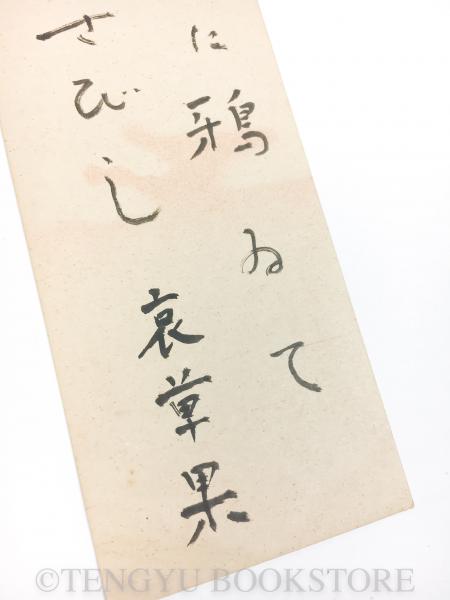 に鴉ゐて
さびし 哀草果
©TENGYU BOOKSTORE